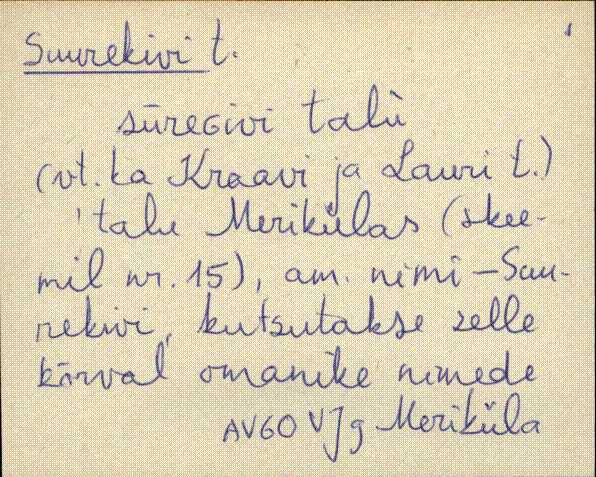 Suurekivi t.
sūreGivi talù
(vt. ka Kraavi ja Lauri t.)
'talu Merikülas (skee-
mil nr. 15), am. nimi – Suu-
rekivi, kutsutakse selle
kõrval omanike nimede
AV60 VJg Meriküla